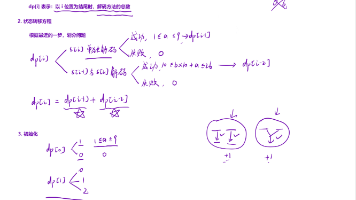 dp[i] 表示：以 i 位置为结尾时，解码方法的总数
2. 状态转移方程
根据最近的一步，划分问题
dp[i]
s[i] 单独解码
成功，1 ≤ a ≤ 9 → dp[i-1]
失败，0
s[i-1] 与 s[i] 解码
成功，10 ≤ b*10+a ≤ 26 → dp[i-2]
失败，0
dp[i] = dp[i-1] + dp[i-2]
3. 初始化
dp[0]
1 1 ≤ a ≤ 9
0 0
dp[1]
0
1
2
+1 +1